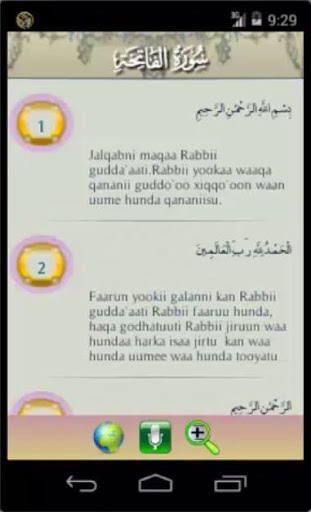 3G 9:29
سُورَةُ الْفَاتِحَةِ
1
بِسْمِ اللَّهِ الرَّحْمَٰنِ الرَّحِيمِ
Jalqabni maqaa Rabbii
gudda`aati.Rabbii yookaa waaqa
qananii guddo`oo xiqqo`oon waan
uume hunda qananiisu.
2
الْحَمْدُ لِلَّهِ رَبِّ الْعَالَمِينَ
Faarun yookii galanni kan Rabbii
gudda`aati Rabbii faaruu hunda,
haqa godhatuuti Rabbii jiruun waa
hundaa harka isaa jirtu kan waa
hunda uumee waa hunda tooyatu
الرَّحْمَٰنِ الرَّحِيمِ